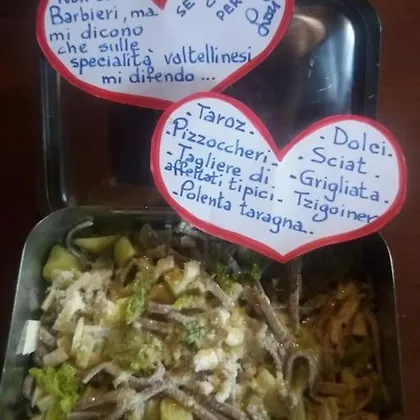 Barbieri, ma
mi dicono
che sulle
specialità valtellinesi
mi difendo ...
SE
PER
- Taroz -
- Pizzoccheri -
- Tagliere di
affettati tipici -
- Polenta taragna..
- Dolci -
- Sciat -
- Grigliata -
- Tzigoiner